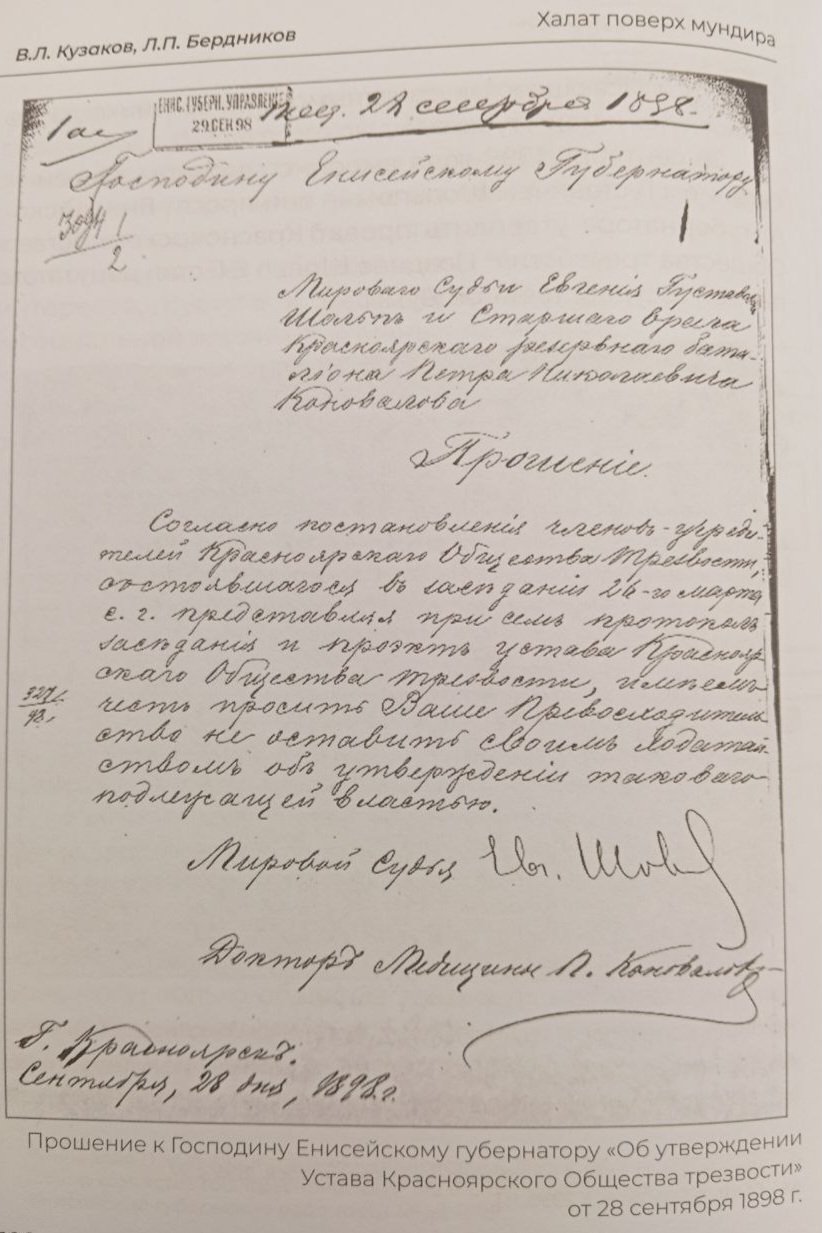 В.Л. Кузаков, Л.П. Бердников
Халат поверх мундира
ЕНИС. ГУБЕРН. УПРАВЛЕНИЕ
29 СЕН 98
28 сентября 1898.
Господину Енисейскому Губернатору
1
2
Мироваго Судьи Евгенія Густавов.
Шольпъ и Старшаго врача
Красноярскаго резервнаго бата-
ліона Петра Николаевича
Коновалова
Прошеніе.
Согласно постановленія членовъ-учреди-
телей Красноярскаго Общества Трезвости,
состоявшагося въ засѣданіи 26-го марта
с. г. представляя при семъ протоколъ
засѣданія и проэктъ устава Краснояр
скаго Общества трезвости, имѣемъ
честь просить Ваше Превосходитель
ство не оставить своимъ ходатай
ствомъ объ утвержденіи таковаго
подлежащей властью.
327
98.
Мировой Судья Евг. Шольп
Докторъ Медицины П. Коноваловъ
Г. Красноярскъ.
Сентября, 28 дня, 1898 г.
Прошение к Господину Енисейскому губернатору «Об утверждении
Устава Красноярского Общества трезвости»
от 28 сентября 1898 г.